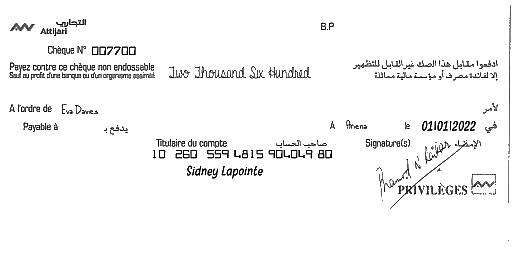 التجاري
Attijari
B.P
Chèque N° 007700
Payez contre ce chèque non endossable
Sauf au profit d'une banque ou d'un organisme assimilé
Two Thousand Six Hundred
ادفعوا مقابل هذا الصك غير القابل للتظهير
إلا لفائدة مصرف أو مؤسسة مالية مماثلة
A l'ordre de Eva Daves
لأمر
Payable à يدفع بـ
A Anena le 01/01/2022 في
Titulaire du compte صاحب الحساب
Signature(s) الإمضاء
10 260 559 4815 904049 80
Sidney Lapointe
PRIVILÈGES